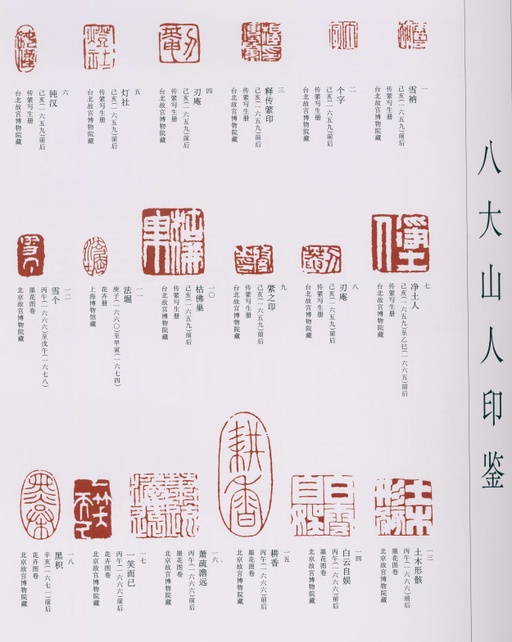 八大山人印鉴
一
雪衲
己亥(一六五九)前后
传綮写生册
台北故宫博物院藏
二
个字
己亥(一六五九)前后
传綮写生册
台北故宫博物院藏
三
释传綮印
己亥(一六五九)前后
传綮写生册
台北故宫博物院藏
四
刃庵
己亥(一六五九)前后
传綮写生册
台北故宫博物院藏
五
灯社
己亥(一六五九)前后
传綮写生册
台北故宫博物院藏
六
钝汉
己亥(一六五九)前后
传綮写生册
台北故宫博物院藏
七
净土人
己亥(一六五九)至乙巳(一六六五)前后
传綮写生册
台北故宫博物院藏
八
刃庵
己亥(一六五九)前后
传綮写生册
台北故宫博物院藏
九
綮之印
己亥(一六五九)前后
传綮写生册
台北故宫博物院藏
一〇
枯佛巢
己亥(一六五九)前后
传綮写生册
台北故宫博物院藏
一一
法堀
庚子(一六六〇)至甲寅(一六七四)
花卉册
上海博物馆藏
一二
雪个
丙午(一六六六)至戊午(一六七八)
墨花图卷
北京故宫博物院藏
一三
土木形骸
丙午(一六六六)前后
墨花图卷
北京故宫博物院藏
一四
白云自娱
丙午(一六六六)前后
墨花图卷
北京故宫博物院藏
一五
耕香
丙午(一六六六)前后
墨花图卷
北京故宫博物院藏
一六
萧疏澹远
丙午(一六六六)前后
墨花图卷
北京故宫博物院藏
一七
一笑而已
丙午(一六六六)前后
花卉图卷
北京故宫博物院藏
一八
黑枳
辛亥(一六七一)前后
花卉图卷
北京故宫博物院藏